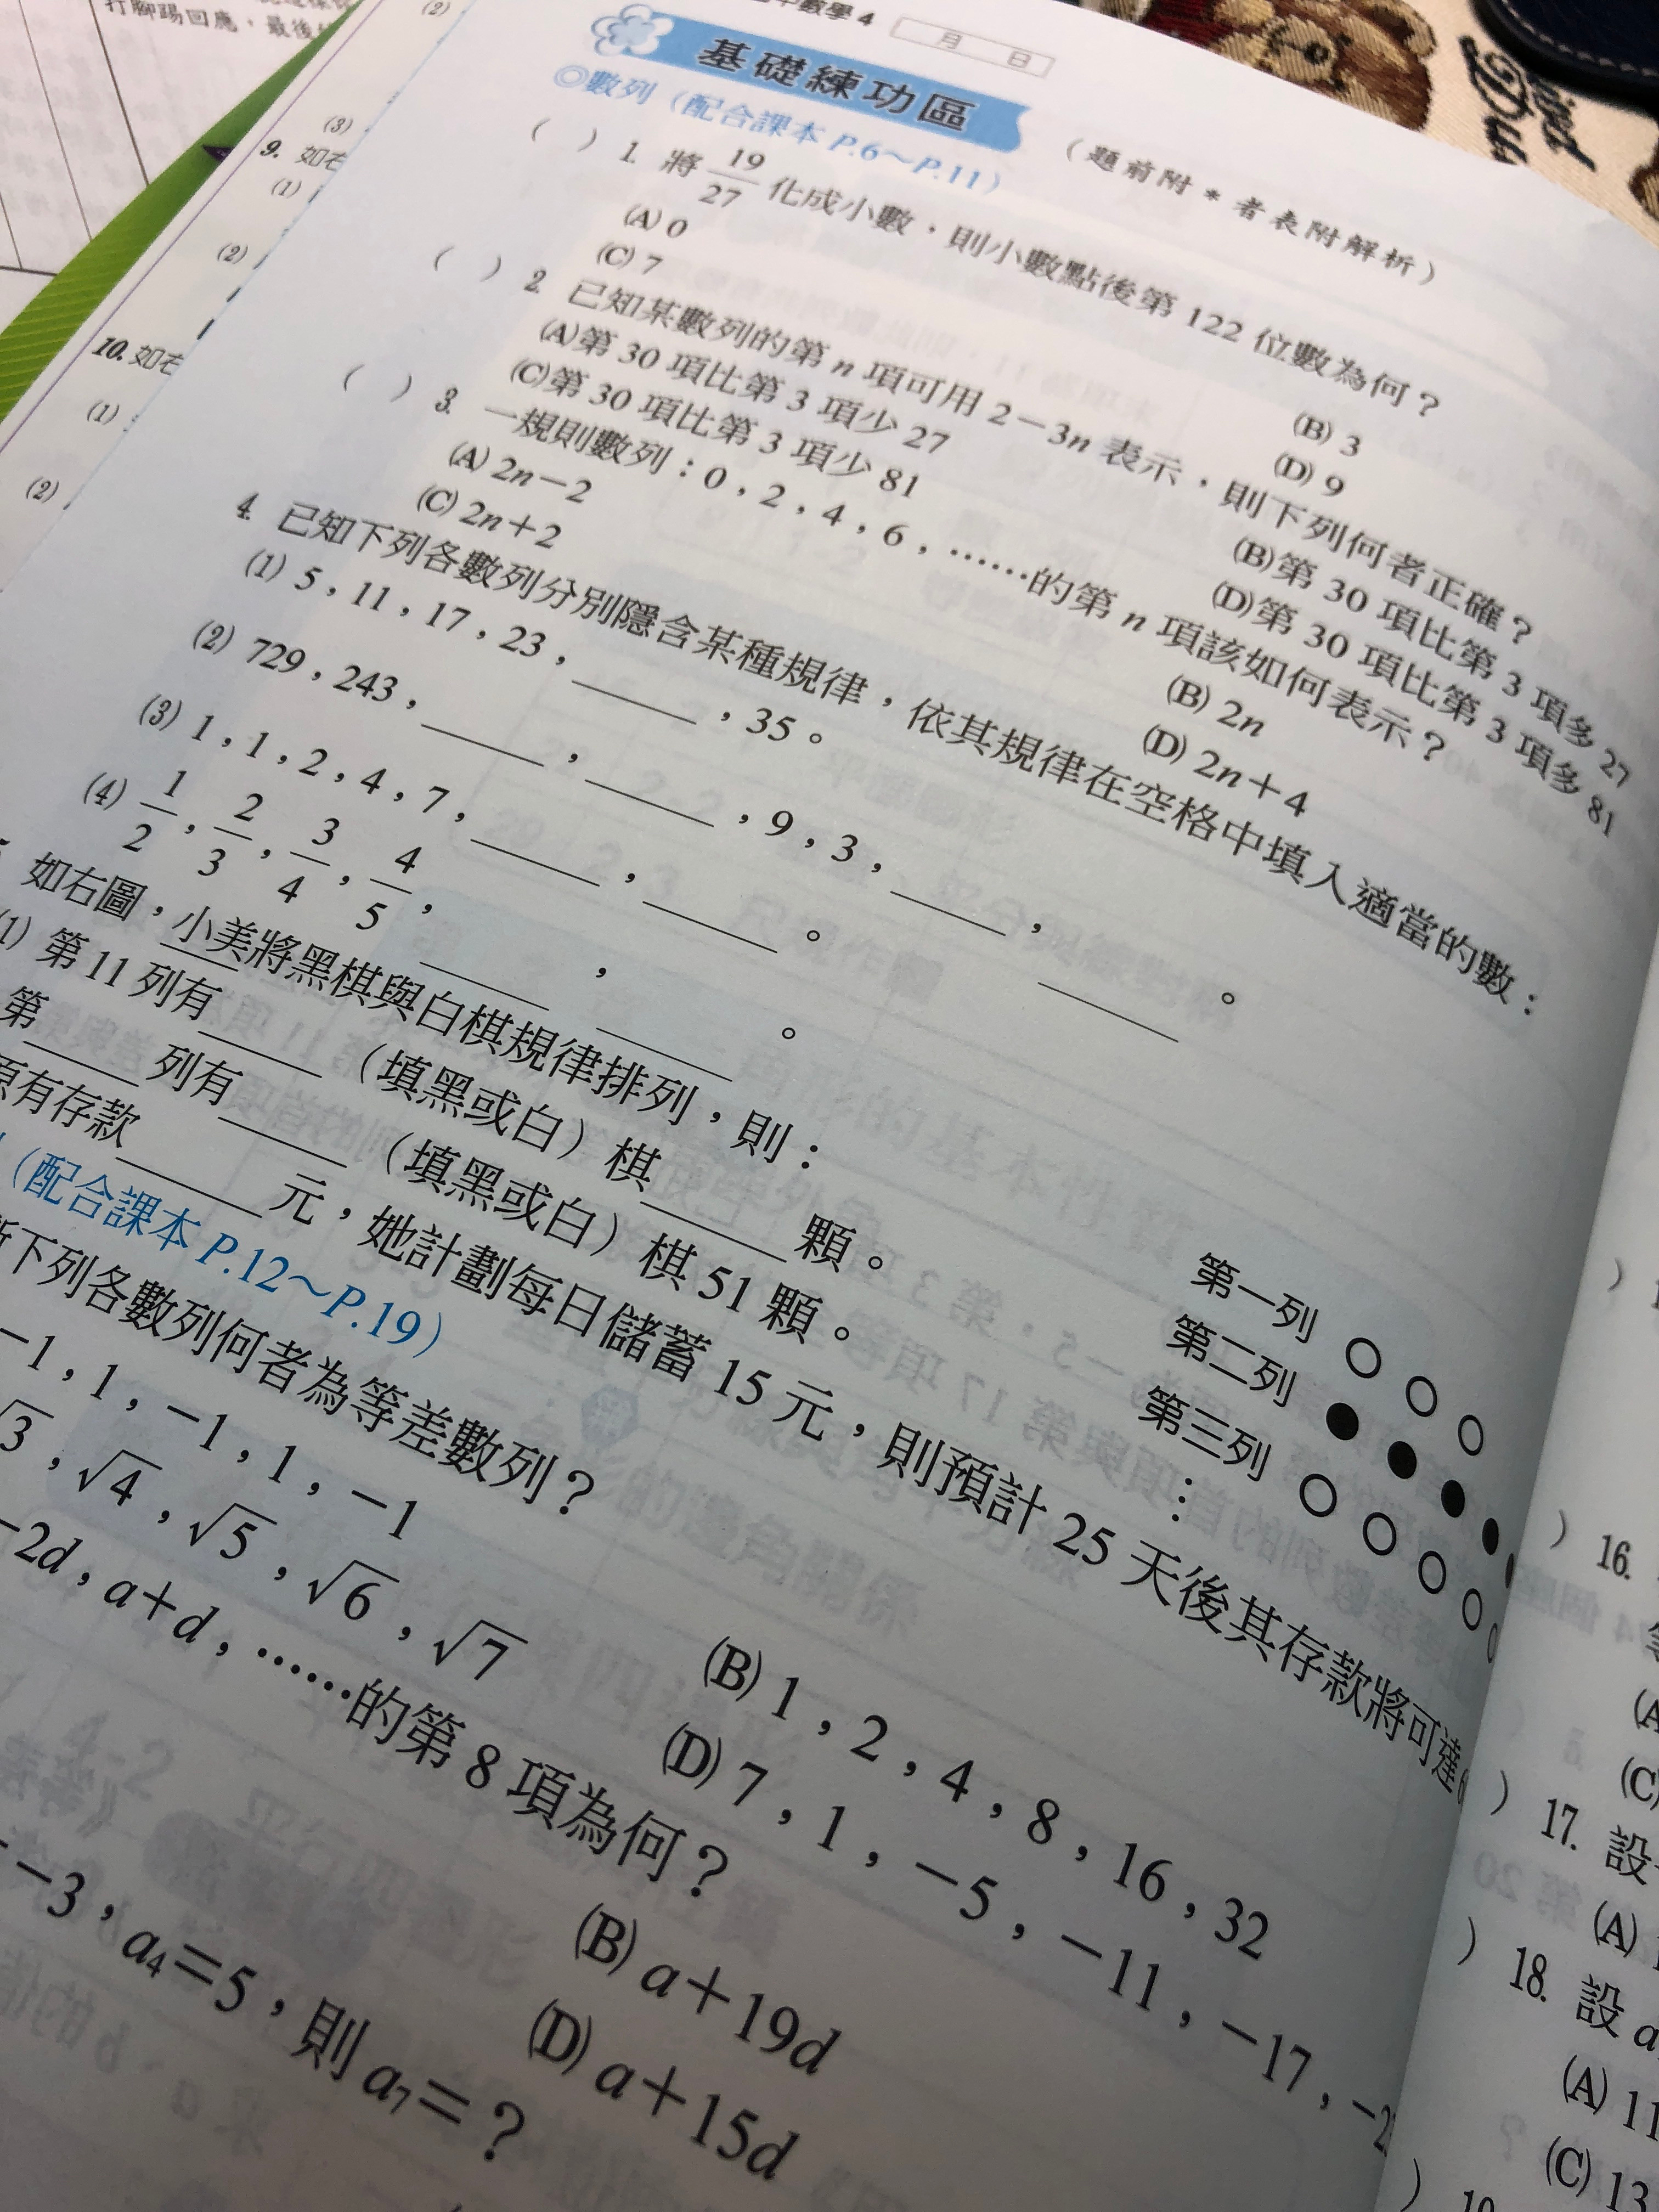 打腳踢回應，最後
(2)
(3)
9. 如右
(1)
(2)
10. 如右
(1)
(2)
中數學 4
月 日
基礎練功區
（題前附 * 者表附解析）
◎數列（配合課本 P.6～P.11）
（ ）1. 將 19/27 化成小數，則小數點後第 122 位數為何？
(A) 0 (B) 3
(C) 7 (D) 9
（ ）2. 已知某數列的第 n 項可用 2－3n 表示，則下列何者正確？
(A)第 30 項比第 3 項少 27 (B)第 30 項比第 3 項多 27
(C)第 30 項比第 3 項少 81 (D)第 30 項比第 3 項多 81
（ ）3. 一規則數列：0，2，4，6，……的第 n 項該如何表示？
(A) 2n－2 (B) 2n
(C) 2n＋2 (D) 2n＋4
4. 已知下列各數列分別隱含某種規律，依其規律在空格中填入適當的數：
(1) 5，11，17，23，＿＿＿，35。
(2) 729，243，＿＿＿，＿＿＿，9，3，＿＿＿，＿＿＿。
(3) 1，1，2，4，7，＿＿＿，＿＿＿。
(4) 1/2，2/3，3/4，4/5，＿＿＿，＿＿＿。
如右圖，小美將黑棋與白棋規律排列，則：
(1) 第 11 列有＿＿＿（填黑或白）棋＿＿＿顆。
第＿＿＿列有＿＿＿（填黑或白）棋 51 顆。
第一列 ○ ○ ○
第二列 ● ● ● ●
第三列 ○ ○ ○ ○ ○
⋮
原有存款＿＿＿元，她計劃每日儲蓄 15 元，則預計 25 天後其存款將可達
（配合課本 P.12～P.19）
下列各數列何者為等差數列？
－1，1，－1，1，－1 (B) 1，2，4，8，16，32
√3，√4，√5，√6，√7 (D) 7，1，－5，－11，－17，－2
－2d，a＋d，……的第 8 項為何？
(B) a＋19d
(D) a＋15d
－3，a₄＝5，則 a₇＝？
）
） 16.
(A
(C)
） 17. 設
(A)
） 18. 設 a
(A) 11
(C) 13
）